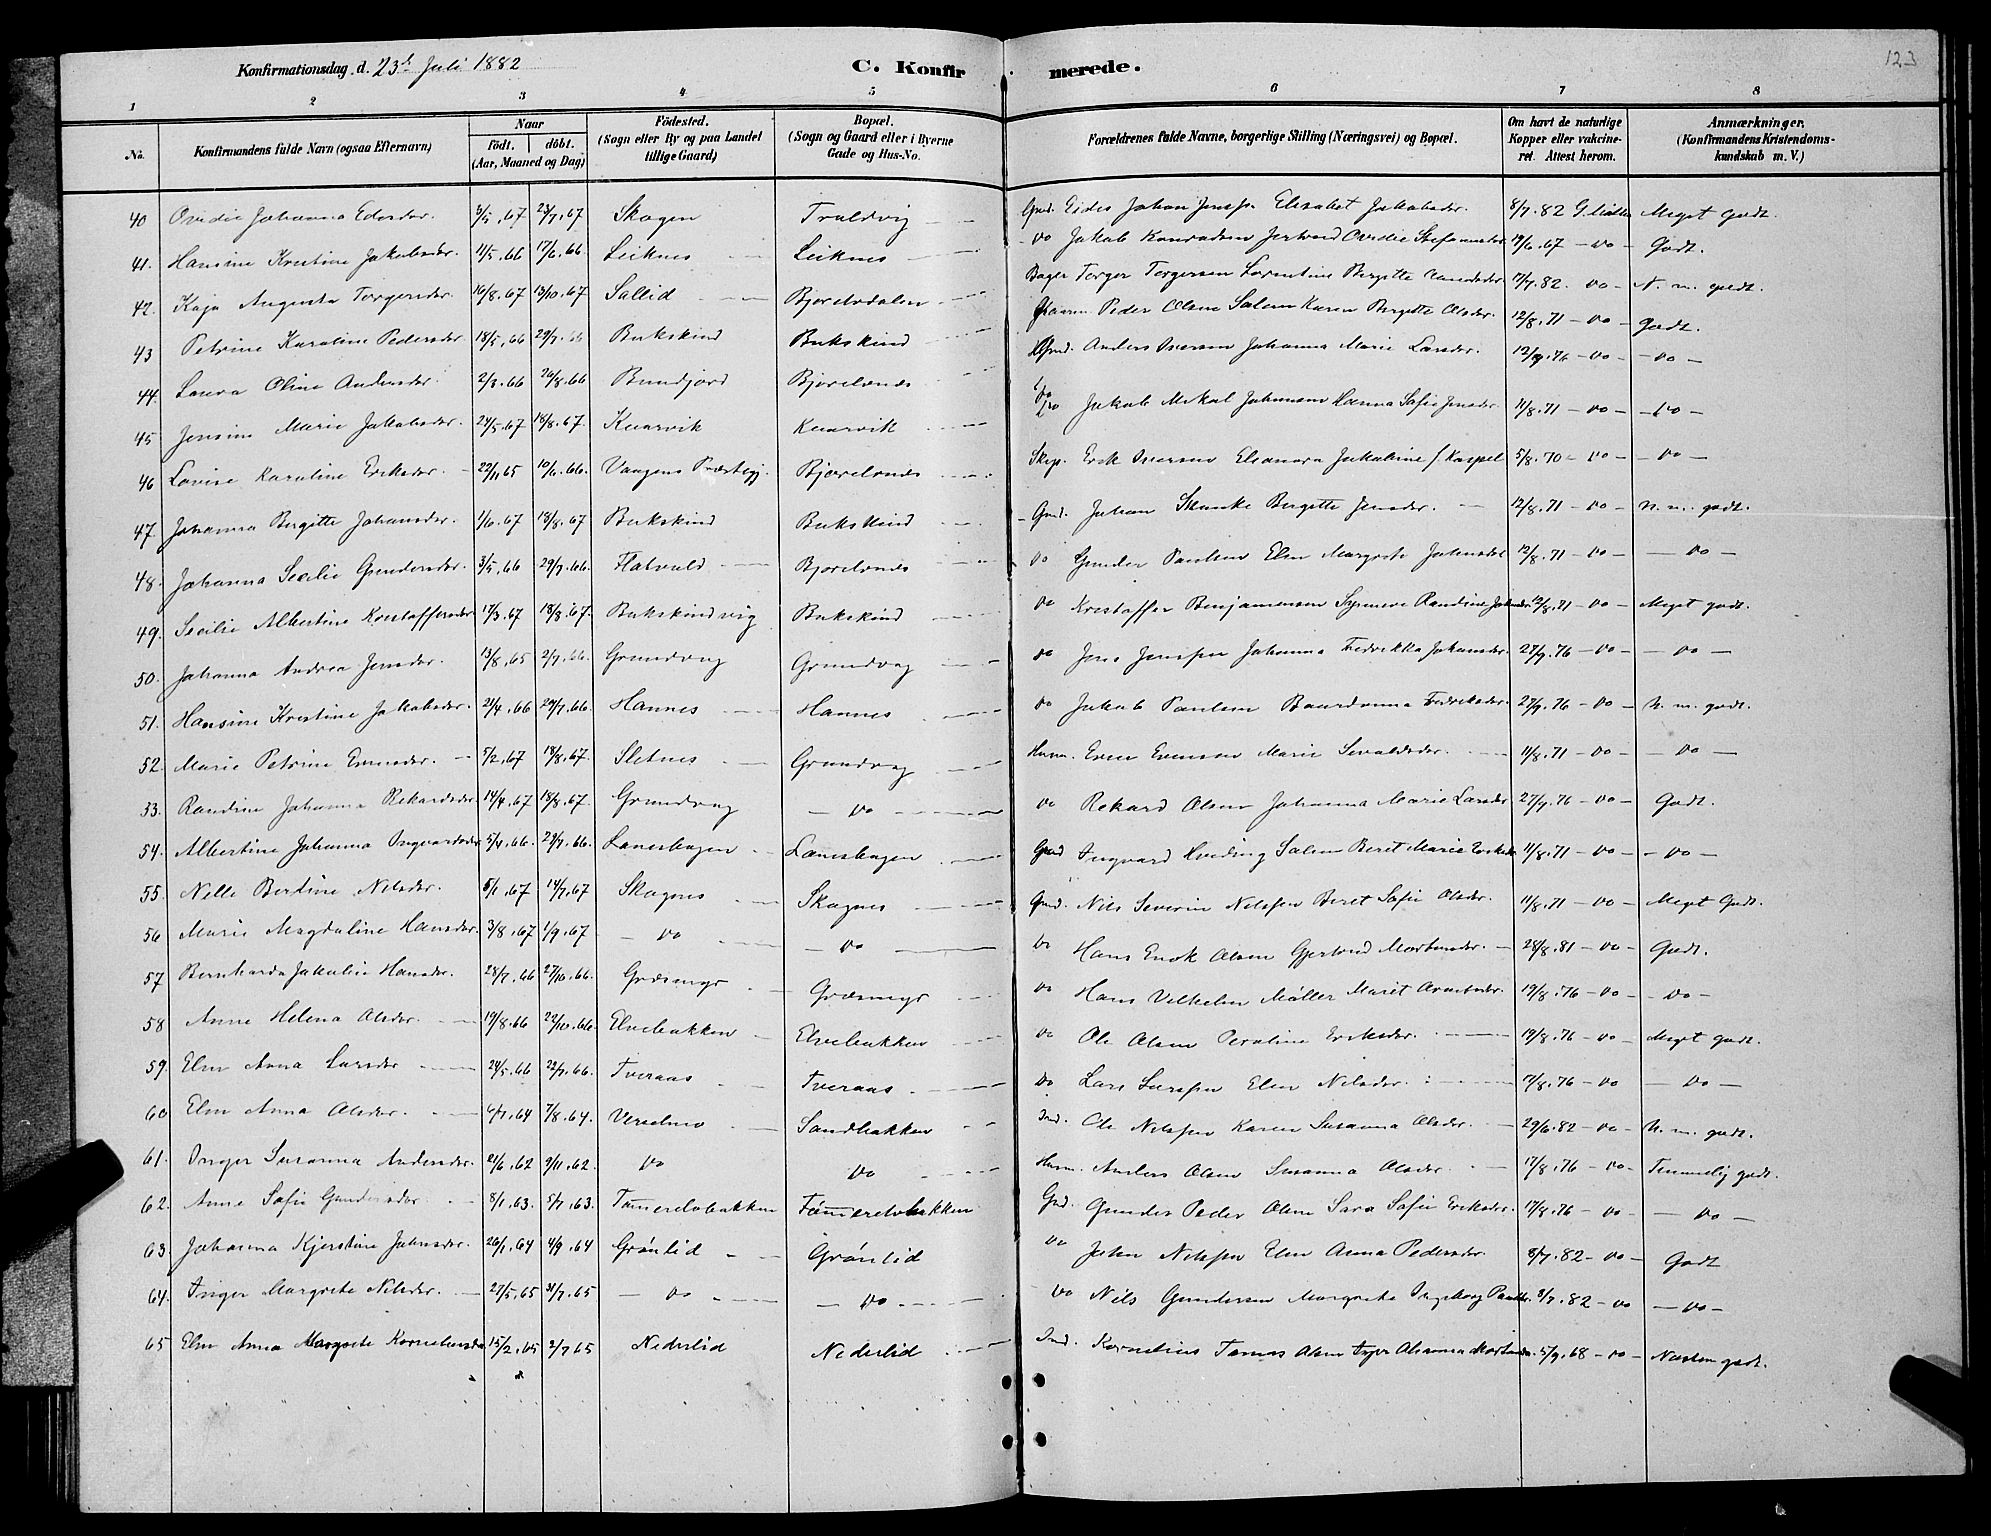 123
Konfirmationsdag d. 23de Juli 1882
C. Konfirmerede.
1 2 3 4 5 6 7 8
No. Konfirmandens fulde Navn (ogsaa Efternavn) Naar født. døbt. (Aar, Maaned og Dag) Fødested. (Sogn eller By og paa Landet tillige Gaard) Bopæl. (Sogn og Gaard eller i Byerne Gade og Hus-No. Forældrenes fulde Navne, borgerlige Stilling (Næringsvei) og Bopæl. Om havt de naturlige Kopper eller vakcineret. Attest herom. Anmærkninger. (Konfirmandens Kristendomskundskab m. V.)
40 Ovidie Johanna 3/5.67 23/7.67 Skogen Traldvig Gmd. Johan Elisabet Jakobsdr. 8/7.82 Meget godt.
41. Hansine Kristine Jakobsdr. 11/5.66 17/6.66 Leiknes Leiknes do Jakob Konradsen Ovidie 19/6.67 do Godt.
42. Kaja Augusta Torgersdr. 16/8.67 13/10.67 Sallid Bjorelvdalen Torger Torgersen Lorentine Birgitte 17/7.82. do N. m. godt.
43 Petrine Karoline Pedersdr 18/5.66 29/7.66 Bukskind Bukskind Peder Olsen Karen Birgitte Olsdr. 12/8.71 do Godt.
44. Laura Oline Andersdr. 26/8.66 Bundjord Bjorelvnes Gmd. Anders Iversen Johanna Marie Larsdr. 76 do do
45 Jensine Marie Jakobsdr. 24/5.67 18/8.67. Kvarvik Kvarvik do Jakob Mikal Johansen Hanna Sofie Jensdr. 11/8.71 do do
46 Lovise Karoline Eriksdr. 22/11.65 10/6.66. Vaagens Præstegj. Bjorelvnes Erik Iversen Eleonora Jakobine 5/8.70 do do
47. Johanna Birgitte Johansdr. 1/6.67 18/8.67 Bukskind Bukskind Gmd. Johan Skanke Birgitte Jensdr. 12/8.71 do N. m. godt.
48. Johanna Secilie Gundersdr. 3/5.66 29/7.66. Flatvold Bjorelvnes do Gunder Paulsen Elen Margrete 12/8.71 do do
49. Secilie Albertine Kristoffersdr 17/3.67 18/8.67. Bukskindvig Bukskind do Kristoffer Benjaminsen Randine 12/8.71 do Meget godt.
50. Johanna Andrea Jensdr. 13/8.65 2/7.66. Grundvag Grundvag do Jens Jenssen Johanna Fredrikka Johansdr. 27/9.76 do do
51. Hansine Kristine Jakobsdr. 21/4.66 29/7.66. Hannes Hannes do Jakob Paulsen Baardanna Fredriksdr. 27/9.76 do N. m. godt.
52. Marie Petrine Evensdr. 5/2.67 18/8.67. Sletnes Grundvag Husm. Even Evensen Marie Sivaldsdr. 11/8.71 do do
33. Randine Johanna Rekardsdr 14/4.67 18/8.67. Grundvag do do Rekard Olsen Johanna Marie Larsdr 27/9.76 do Godt.
54. Albertine Johanna Ingvardsdr 5/4.66. 29/7.66. Laneshagen Laneshagen Gmd Ingvard Hveding Beret Marie 11/8.71 do do
55. Nelle Bertine Nilsdr. 5/1.67 14/7.67 Skognes Skognes Gmd. Nils Severin Nilssen Beret Sofie Olsdr. 11/8.71 do Meget Godt.
56 Marie Magdaline Hansdr. 3/8.67 1/9.67 do do do Hans Enok Olsen Gjertrud Mortensdr. 28/8.81 do Godt.
57 Bernharda Jakobie Hansdr. 28/7.66 27/10.66. Græsmyr Græsmyr do Hans Vilhelm Møller Marit 19/8.76 do do
58 Anne Helena Olsdr. 19/8.66 22/10.66. Elvebakken Elvebakken do Ole Olsen Eriksdr. 19/8.76 do Meget godt.
59. Elen Anna Larsdr 24/5.66 22/7.66. Tveraas Tveraas do Lars Larssen Elen Nilsdr. 17/8.76 do do
60. Elen Anna Olsdr. 6/7.64 7/8.64. Sandbakken Ind. Ole Nilssen Karen Susanna Olsdr. 29/6.82 do N. m. godt.
61. Inger Susanna Andersdr. 21/6.62 9/11.62. do do Husm. Anders Olsen Susanna Olsdr. 17/8.76 do Temmelig godt.
62. Anne Sofie Gundersdr 8/1.63. 5/7.63. Tømmerelvbakken Tømmerelvbakken Gmd. Gunder Peder Olsen Sara Sofie Eriksdr. 17/8.76 do do
63. Johanna Kjerstine Johnsdr. 26/1.64 4/9.64 Grónlid Grónlid do John Nilssen Elen Anna Pedersdr. 8/7.82 do Godt
64. Inger Margrete Nilsdr. 27/5.65 31/7.65 do do do Nils Gundersen Margrete Ingeborg 8/7.82 do do
65 Elen Anna Margrete Korneliusdr 15/2.65 2/7.65 Nederlid Nederlid Ind. Kornelius Tomas Olsen Inger 5/9.68 do Næsten godt.